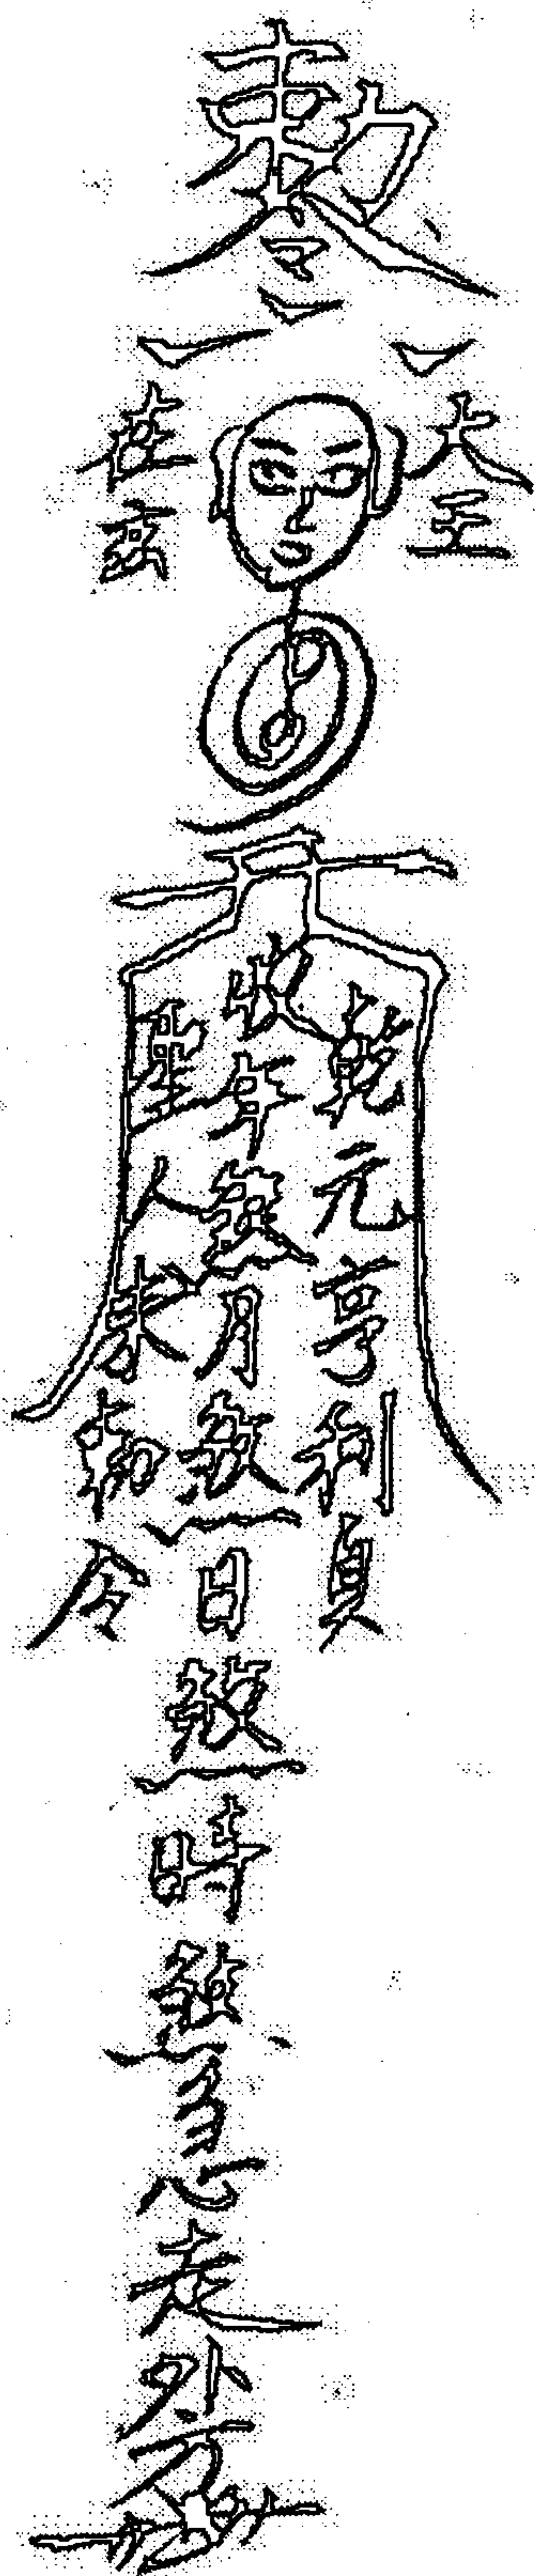 敕令
大王
在玄
乾元亨利貞
收年煞月煞日煞時煞急走外方
聖人來勅令